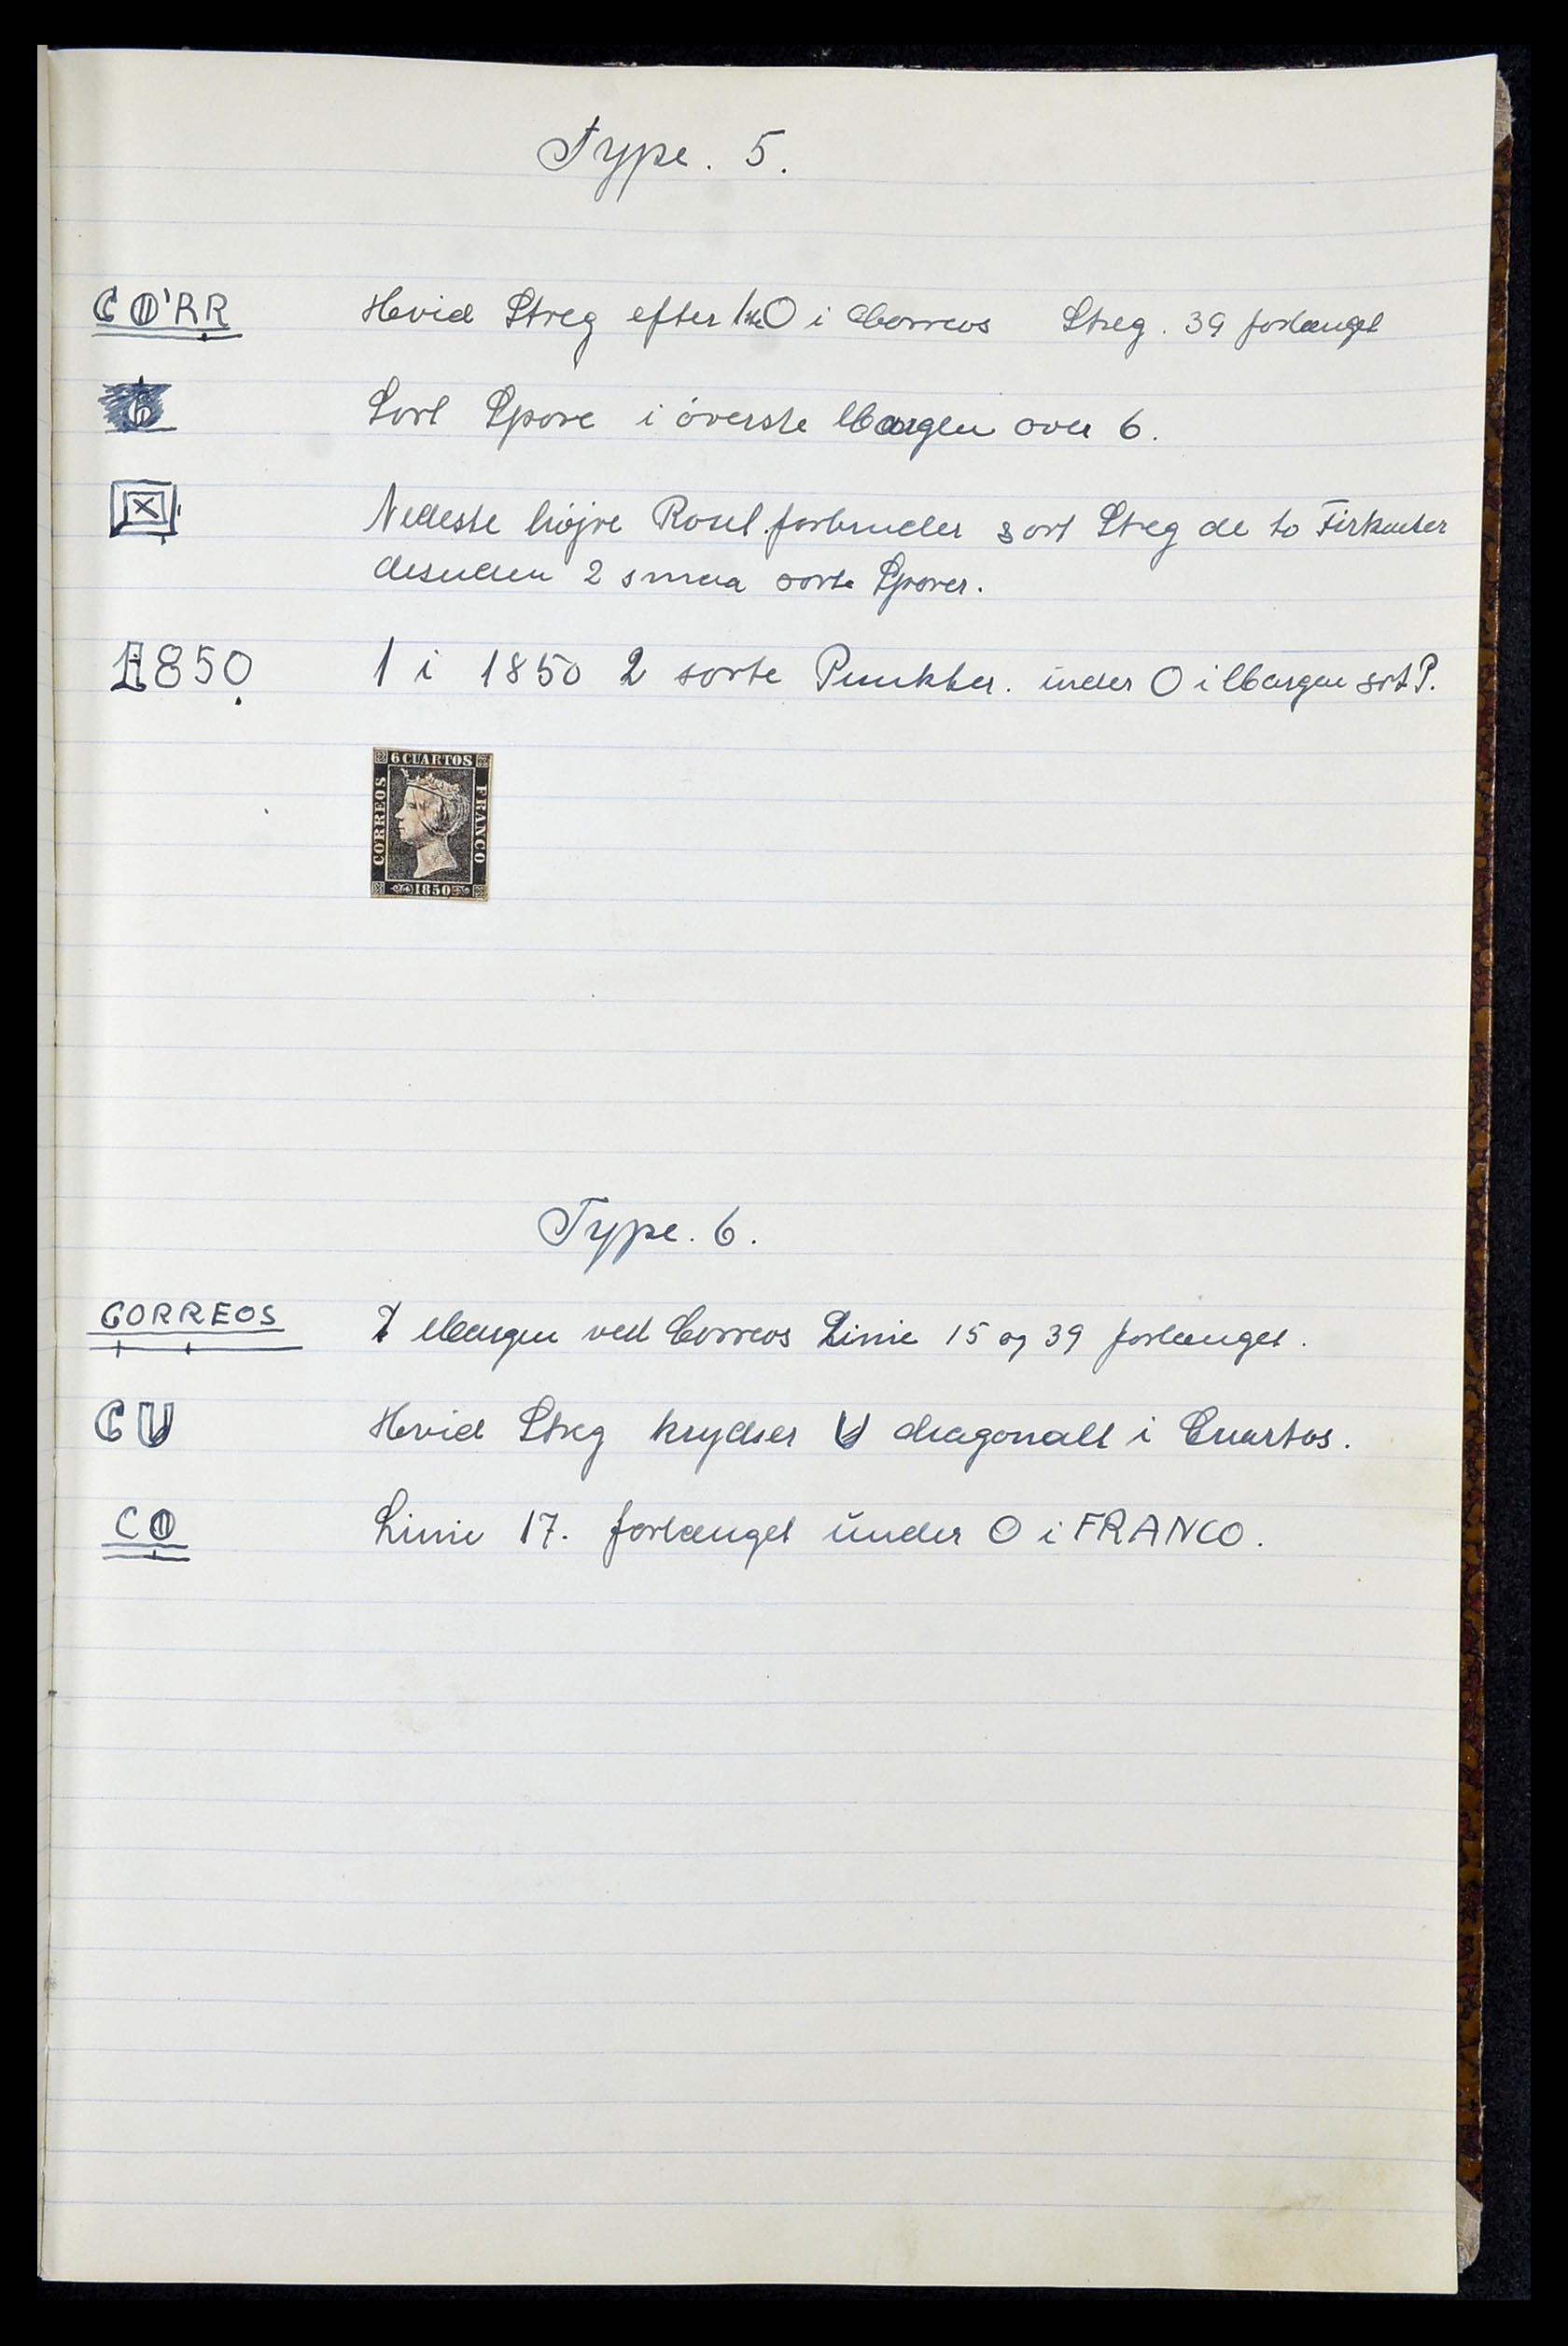 Type. 5.
CO'RR Hvid Streg efter 1ste O i Correos Streg. 39 forlænget
6 Sort Spore i överste Margen over 6.
Nedeste højre Roset forbinder sort Streg de to Firkanter
desuden 2 smaa sorte Sporer.
1850 1 i 1850 2 sorte Punkter. under O i Margen sort P.
6 CUARTOS
CORREOS
FRANCO
1850
Type. 6.
CORREOS I Margen ved Correos Linie 15 og 39 forlænget.
CU Hvid Streg krydser U diagonalt i Cuartos.
CO Linie 17. forlænget under O i FRANCO.